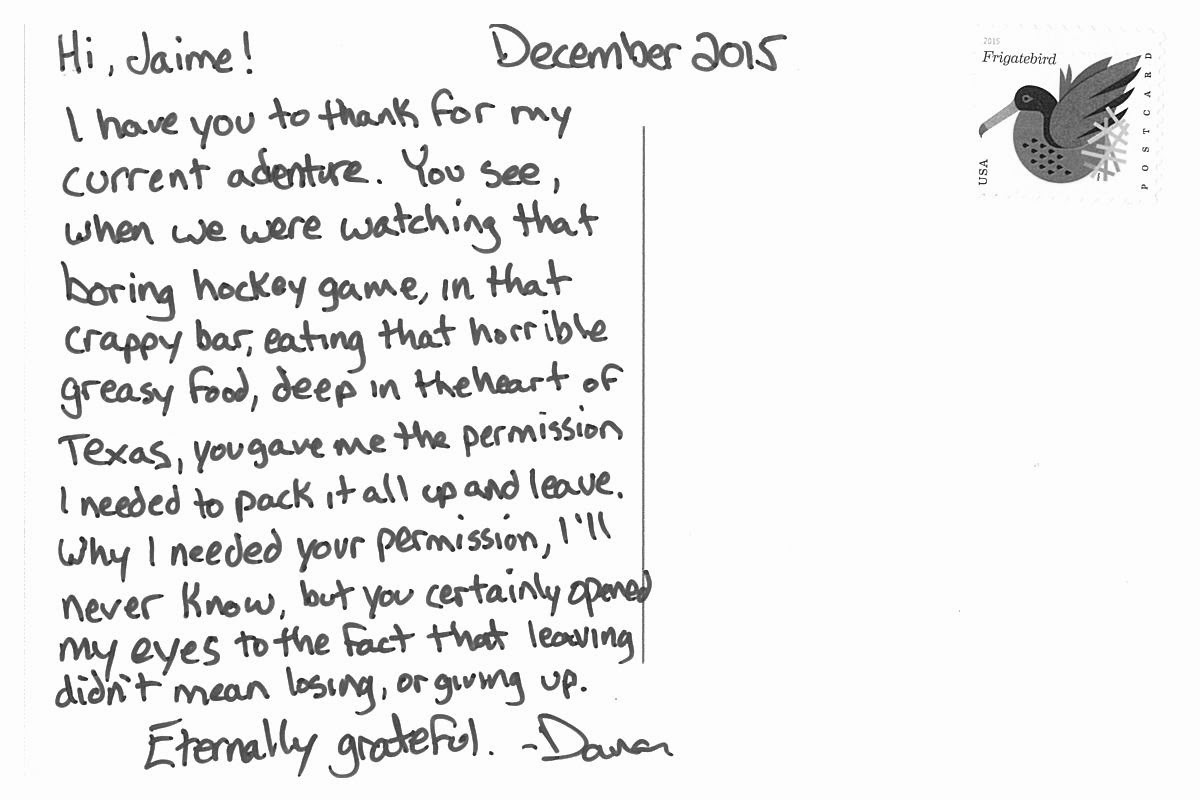 Hi, Jaime!
December 2015
I have you to thank for my
current adenture. You see,
when we were watching that
boring hockey game, in that
crappy bar, eating that horrible
greasy food, deep in the heart of
Texas, you gave me the permission
I needed to pack it all up and leave.
Why I needed your permission, I'll
never know, but you certainly opened
my eyes to the fact that leaving
didn't mean losing, or giving up.
Eternally grateful. -
2015
Frigatebird
USA
POSTCARD